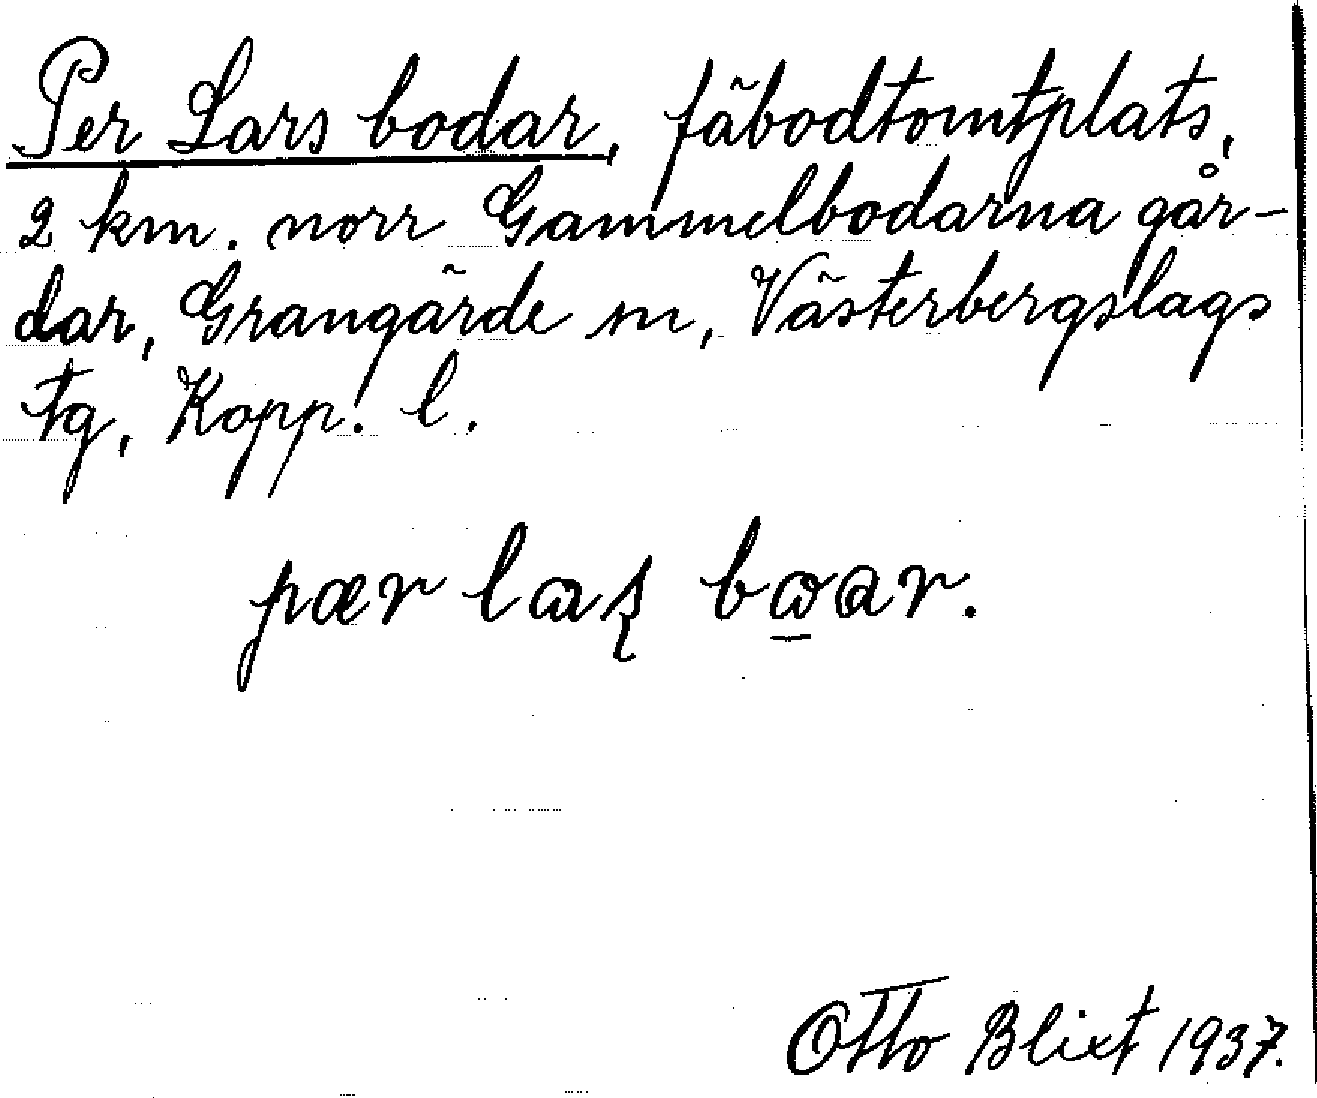 Per Lars bodar, fäbodtomtplats,
2 km. norr Gammelbodarna går-
dar, Grangärde sn, Västerbergslags
tg, Kopp. l.
pær laʂ bωar.
Otto Blixt 1937.